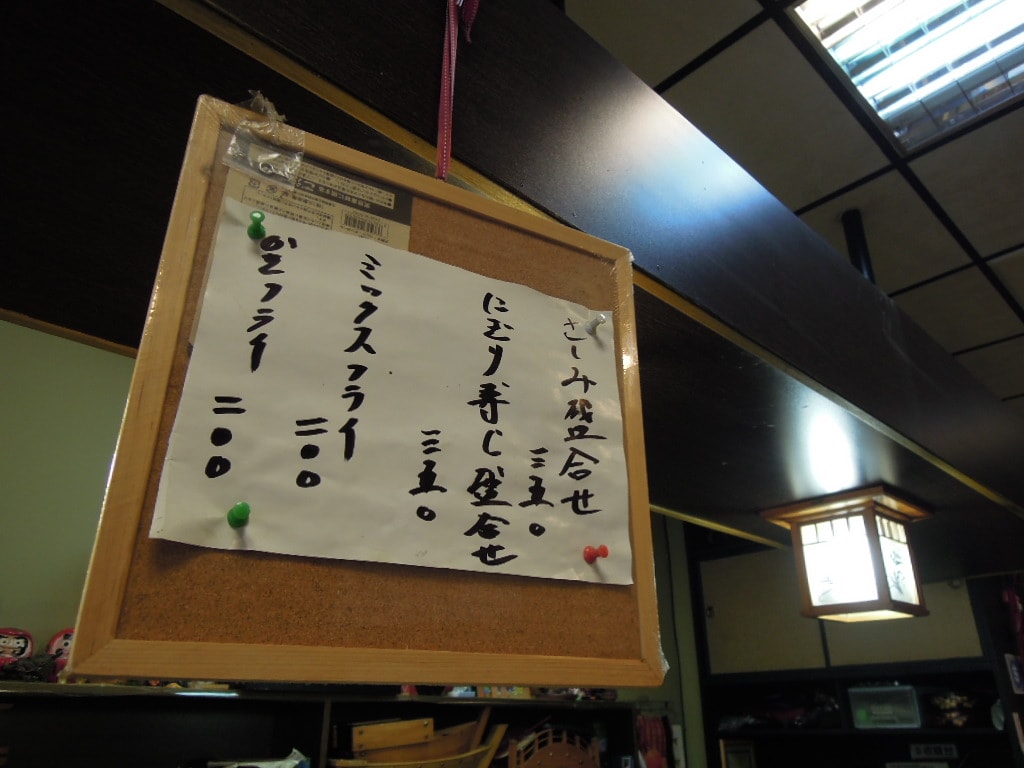 さしみ盛合せ
三五〇
にぎり寿し盛合せ
三五〇
ミックスフライ
二〇〇
カキフライ
二〇〇